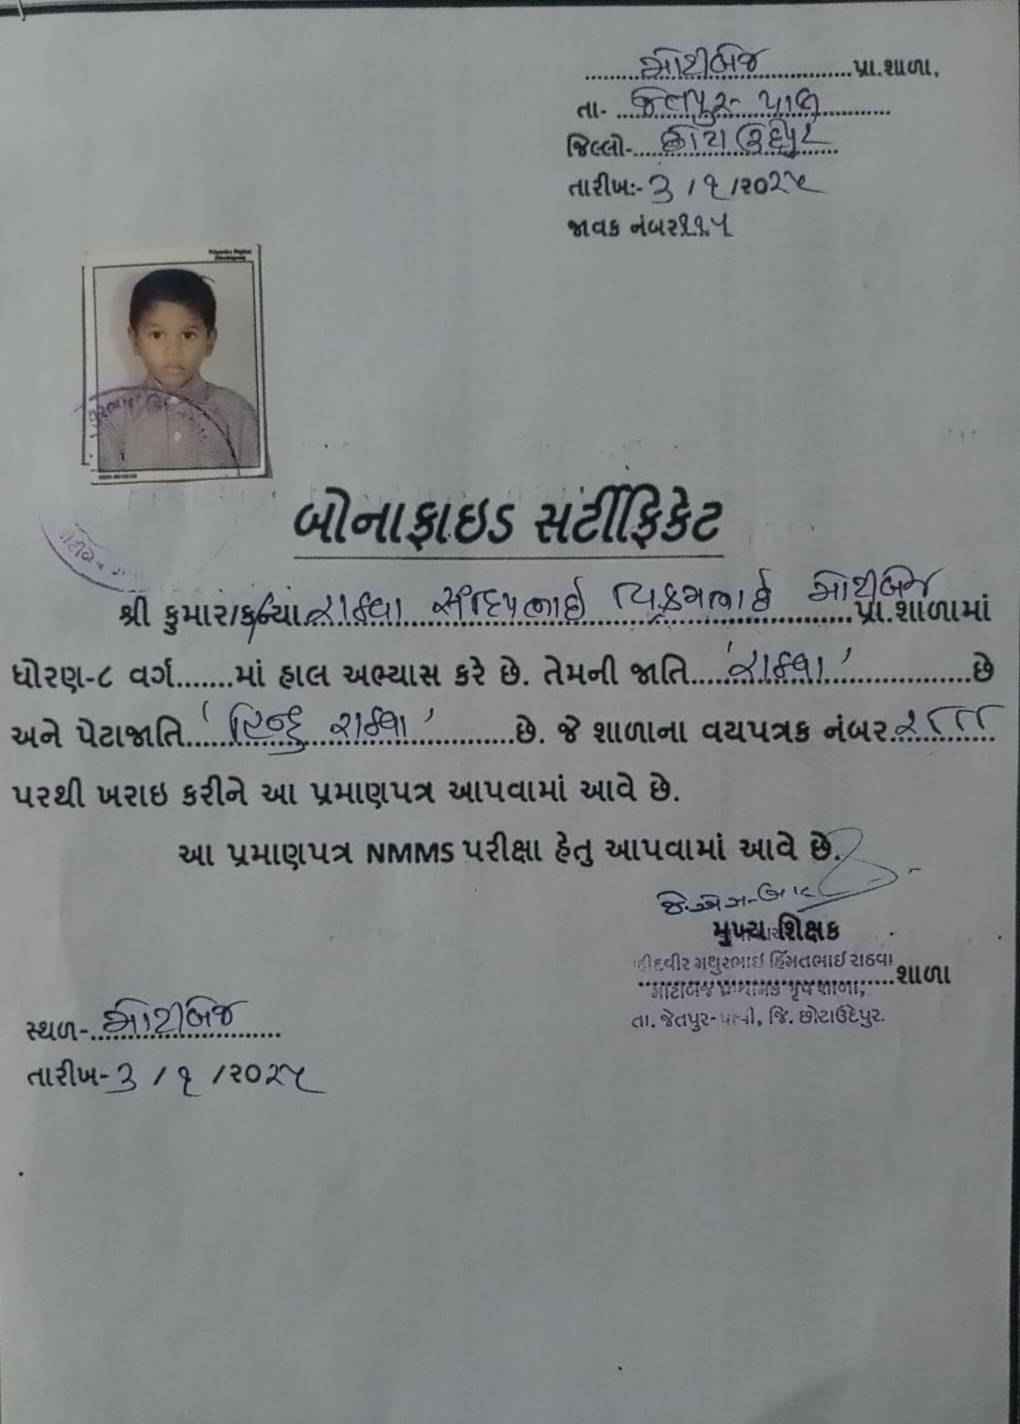 મોટીબેજ પ્રા.શાળા,
તા- જેતપુર- પાવી
જિલ્લો- છોટાઉદેપુર
તારીખઃ- ૩ / ૧ /૨૦૨૫
જાવક નંબર ૧૧૫
બોનાફાઇડ સર્ટીફિકેટ
શ્રી કુમાર/કન્યા રાઠવા સંદિપભાઇ વિક્રમભાઇ મોટીબેજ પ્રા.શાળામાં
ધોરણ-૮ વર્ગ.......માં હાલ અભ્યાસ કરે છે. તેમની જાતિ 'રાઠવા' છે
અને પેટાજાતિ 'હિન્દુ રાઠવા' છે. જે શાળાના વયપત્રક નંબર
પરથી ખરાઇ કરીને આ પ્રમાણપત્ર આપવામાં આવે છે.
આ પ્રમાણપત્ર NMMS પરીક્ષા હેતુ આપવામાં આવે છે.
મુખ્ય શિક્ષક
મથુરભાઇ હિંમતભાઇ રાઠવા
શાળા
તા. જેતપુર-પાવી, જિ. છોટાઉદેપુર.
સ્થળ- મોટીબેજ
તારીખ- ૩ / ૧ /૨૦૨૫